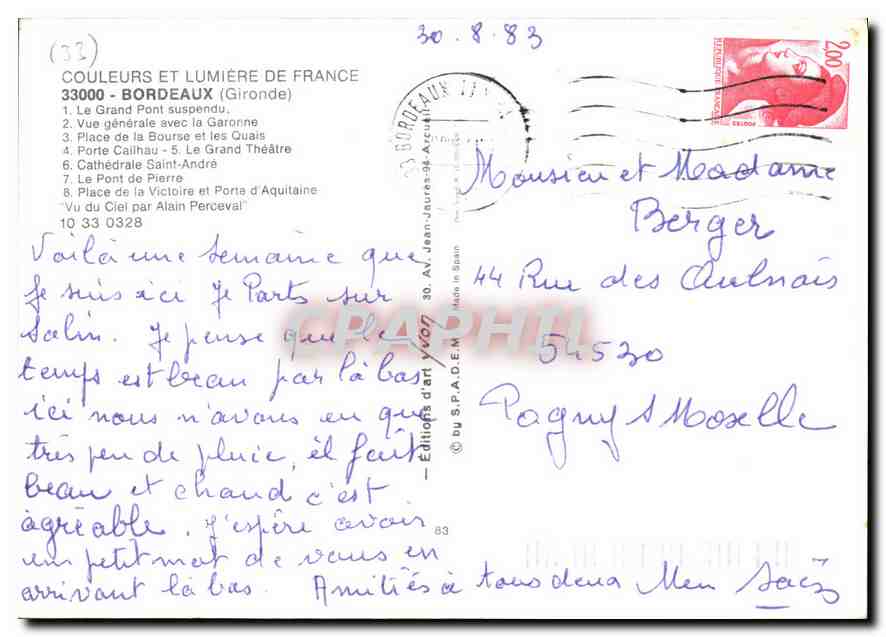 (33)
30.8.83
COULEURS ET LUMIÈRE DE FRANCE
33000 - BORDEAUX (Gironde)
1. Le Grand Pont suspendu.
2. Vue générale avec la Garonne
3. Place de la Bourse et les Quais
4. Porte Cailhau - 5. Le Grand Théâtre
6. Cathédrale Saint-André
7. Le Pont de Pierre
8. Place de la Victoire et Porte d'Aquitaine
"Vu du Ciel par Alain Perceval"
10 33 0328
Voilà une semaine que
Je suis ici Je Parts sur
Salin. Je pense que le
temps est beau par là bas
ici nous n'avons eu que
très peu de pluie, il fait
beau et chaud c'est
agréable. J'espère avoir
un petit mot de vous en
arrivant là bas. Amitiés à tous deux Men Saëz
83
— Éditions d'art yvon 30. Av. Jean-Jaurès-94-Arcueil
© by S.P.A.D.E.M. Made in Spain
33 BORDEAUX
2,00
REPUBLIQUE FRANÇAISE
POSTES
Monsieur et Madame
Berger
44 Rue des Aulnois
54530
Pagny s/ Moselle
CPAPHIL